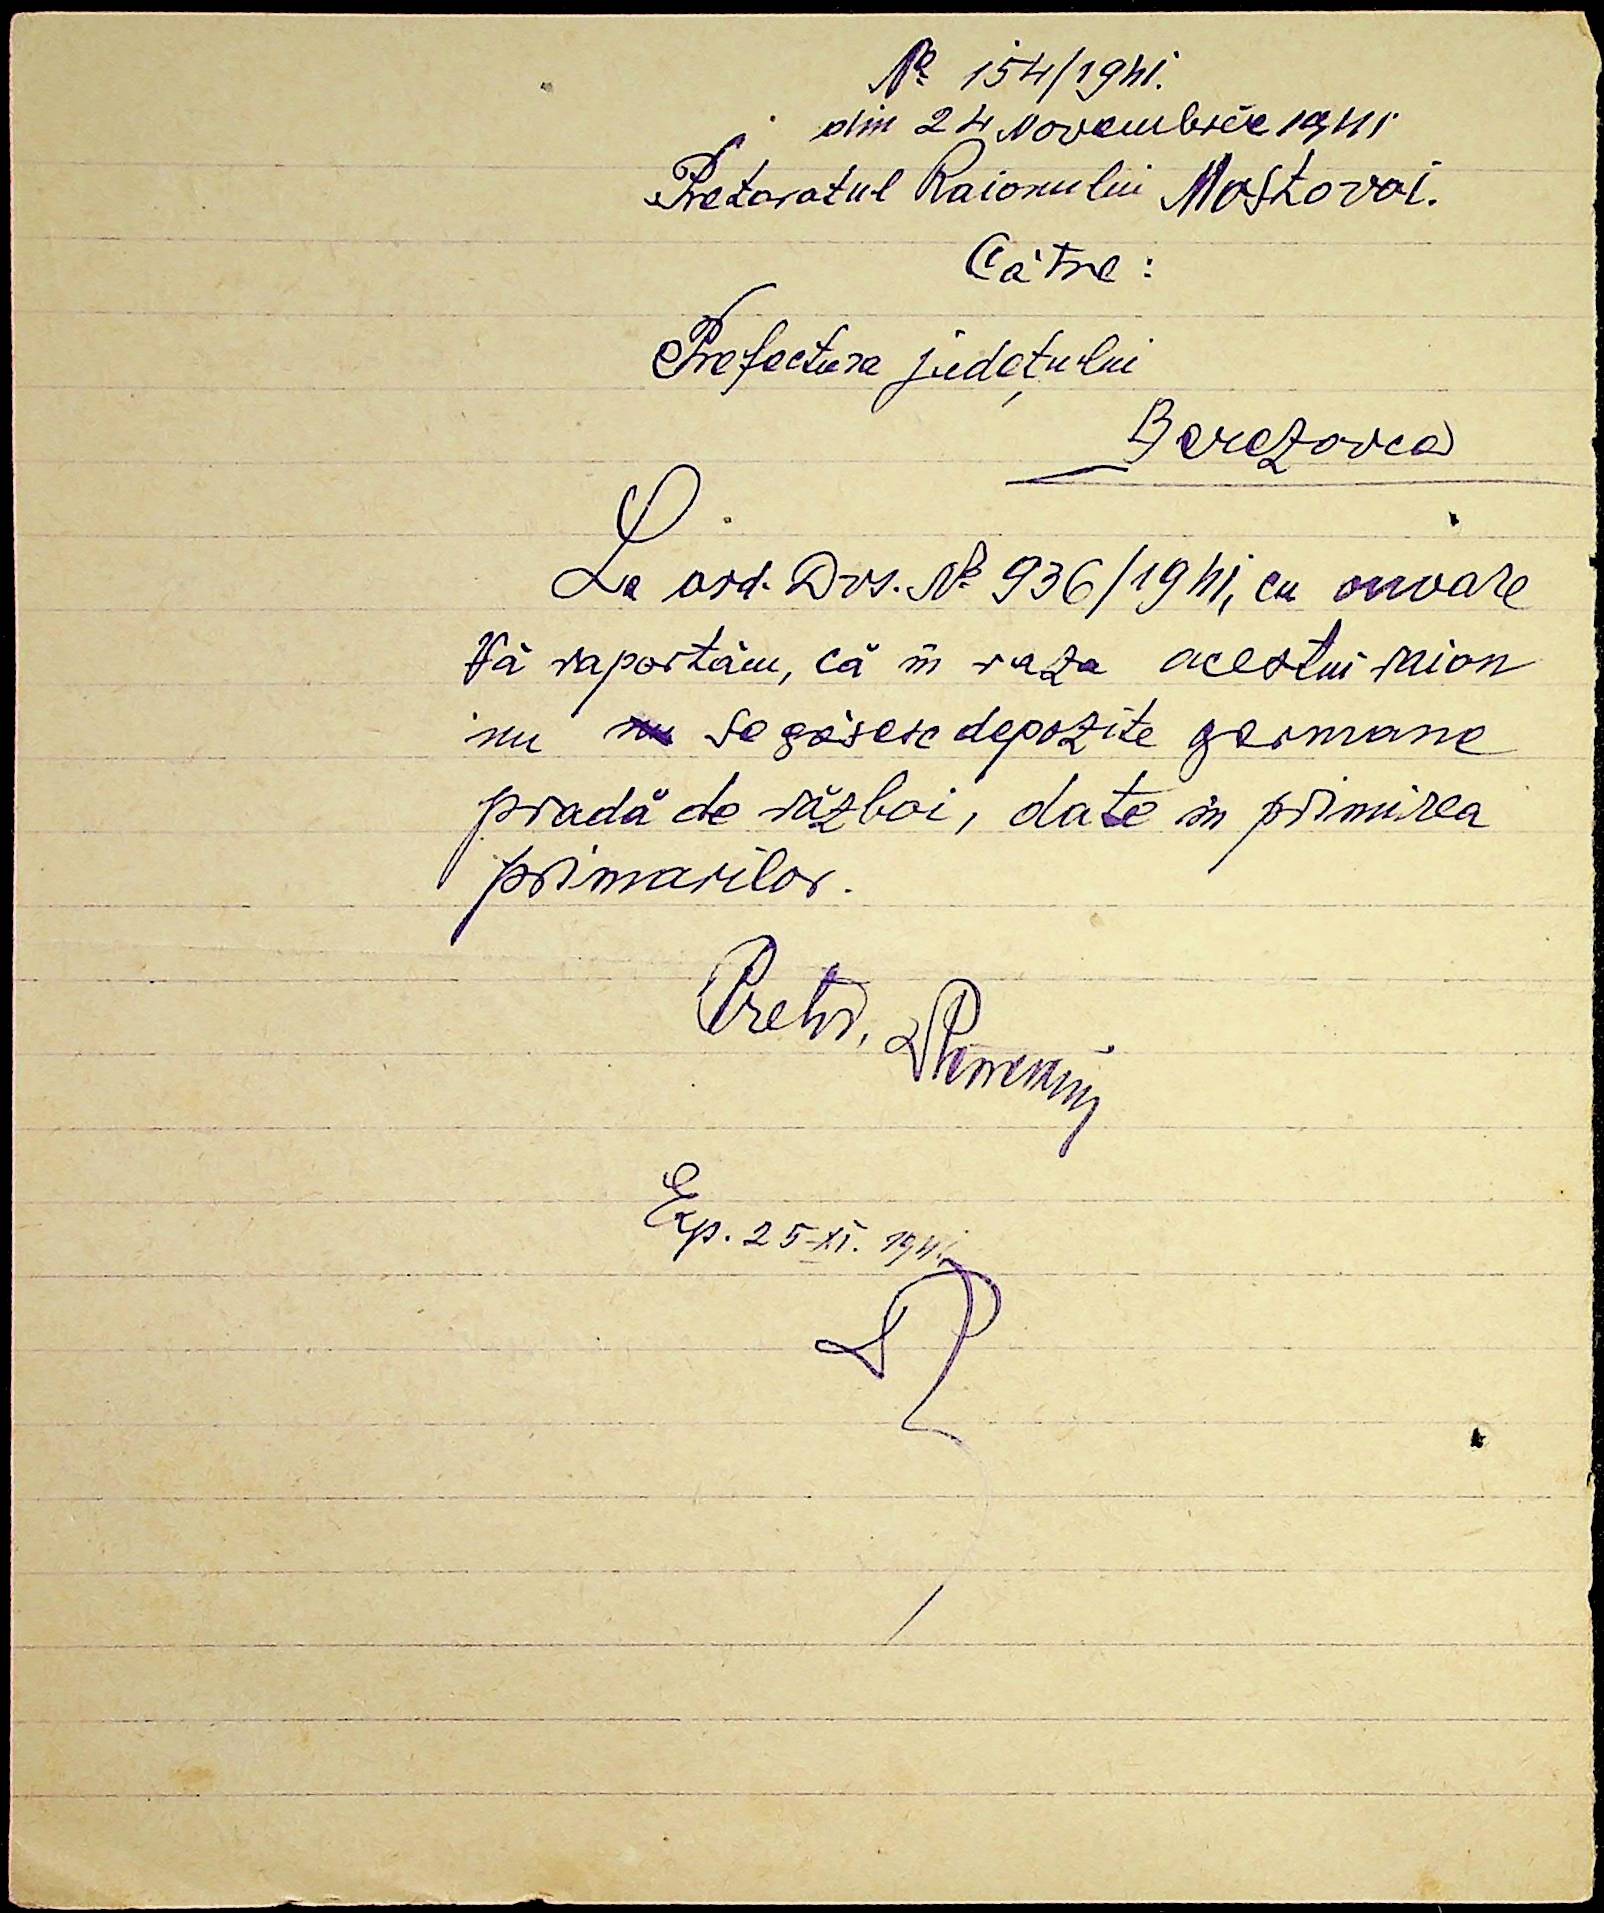 № 154/1941.
din 24 Novembrie 1941
Pretoratul Raionului Mostovoi.
Către:
Prefectura județului
Berezovca
La ord. Dvs. № 936/1941, cu onoare
Vă raportăm, că în raza acestui raion
nu se găsesc depozite germane
pradă de război, date în primirea
primarilor.
Pretor,
Exp. 25-XI. 1941